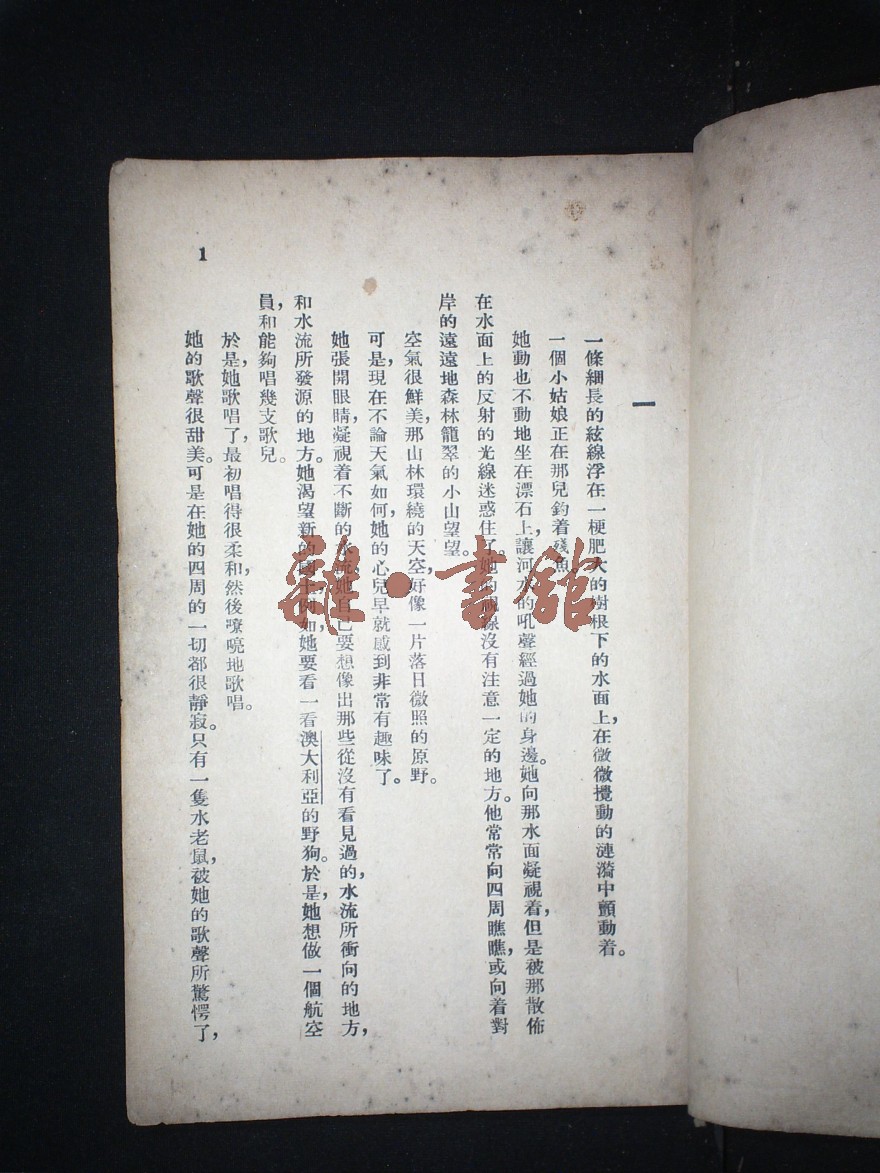 一
一條細長的絃線浮在一梗肥大的樹根下的水面上,在微微攪動的漣漪中顫動着。
一個小姑娘正在那兒釣着殘魚。
她動也不動地坐在漂石上,讓河水的吼聲經過她的身邊。她向那水面凝視着,但是被那散佈
在水面上的反射的光線迷惑住了。她的視線沒有注意一定的地方。他常常向四周瞧瞧,或向着對
岸的遠遠地森林籠翠的小山望望。
空氣很鮮美,那山林環繞的天空,好像一片落日微照的原野。
可是,現在不論天氣如何,她的心兒早就感到非常有趣味了。
她張開眼睛,凝視着不斷的水流。她自己要想像出那些從沒有看見過的,水流所衝向的地方,
和水流所發源的地方。她渴望新的國土,例如,她要看一看澳大利亞的野狗。於是,她想做一個航空
員,和能夠唱幾支歌兒。
於是,她歌唱了,最初唱得很柔和,然後嘹喨地歌唱。
她的歌聲很甜美。可是在她的四周的一切都很靜寂。只有一隻水老鼠,被她的歌聲所驚愕了,
1
雜·書館